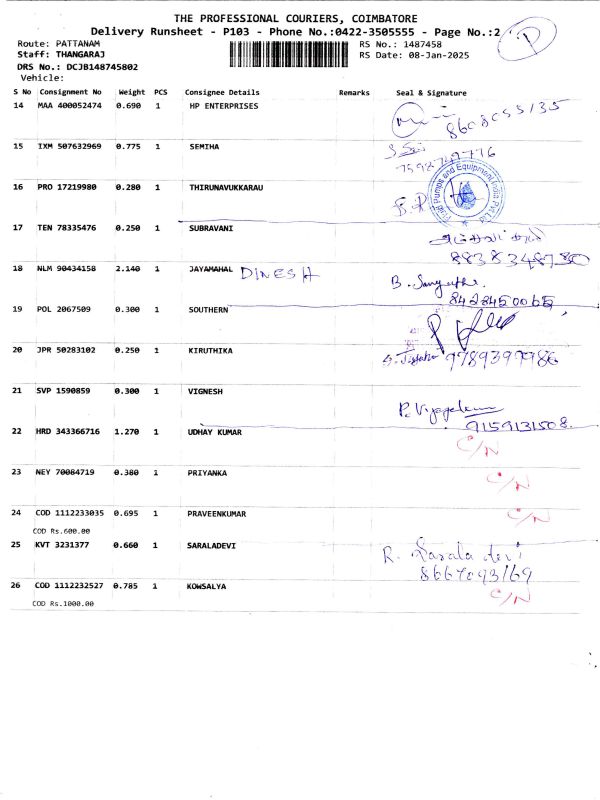 THE PROFESSIONAL COURIERS, COIMBATORE
Delivery Runsheet - P103 - Phone No.:0422-3505555 - Page No.:2
P
Route: PATTANAM
RS No.: 1487458
Staff: THANGARAJ
RS Date: 08-Jan-2025
DRS No.: DCJB148745802
Vehicle:
S No Consignment No Weight PCS Consignee Details Remarks Seal & Signature
14 MAA 400052474 0.690 1 HP ENTERPRISES
8608055135
15 IXM 507632969 0.775 1 SEMIHA
16 PRO 17219980 0.280 1 THIRUNAVUKKARAU
Pumps and Equipment India Pvt Ltd
17 TEN 78335476 0.250 1 SUBRAVANI
8838348730
18 NLM 90434158 2.140 1 JAYAMAHAL DINESH
8428450065
19 POL 2067509 0.300 1 SOUTHERN
20 JPR 50283102 0.250 1 KIRUTHIKA
9789397986
21 SVP 1590859 0.300 1 VIGNESH
9159131508.
22 HRD 343366716 1.270 1 UDHAY KUMAR C/N
23 NEY 70084719 0.380 1 PRIYANKA C/N
24 COD 1112233035 0.695 1 PRAVEENKUMAR C/N
COD Rs.600.00
25 KVT 3231377 0.660 1 SARALADEVI R. Sarala devi
8667093169
26 COD 1112232527 0.785 1 KOWSALYA C/N
COD Rs.1000.00